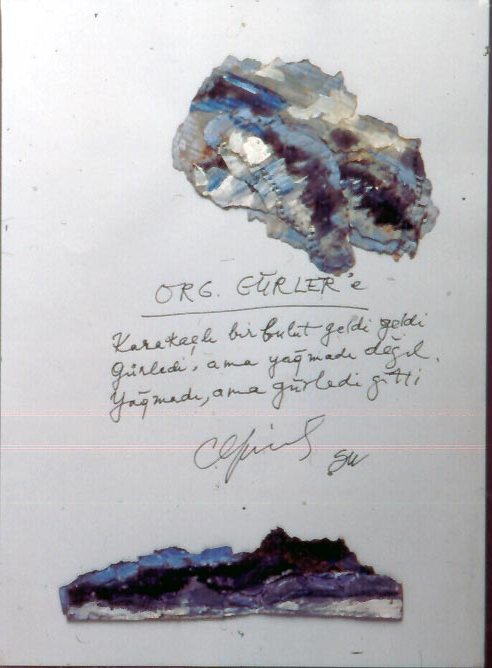 ORG. GÜRLER'e
Karakaşlı bir bulut geldi geldi
Gürledi, ama yağmadı değil.
Yağmadı, ama gürledi gitti